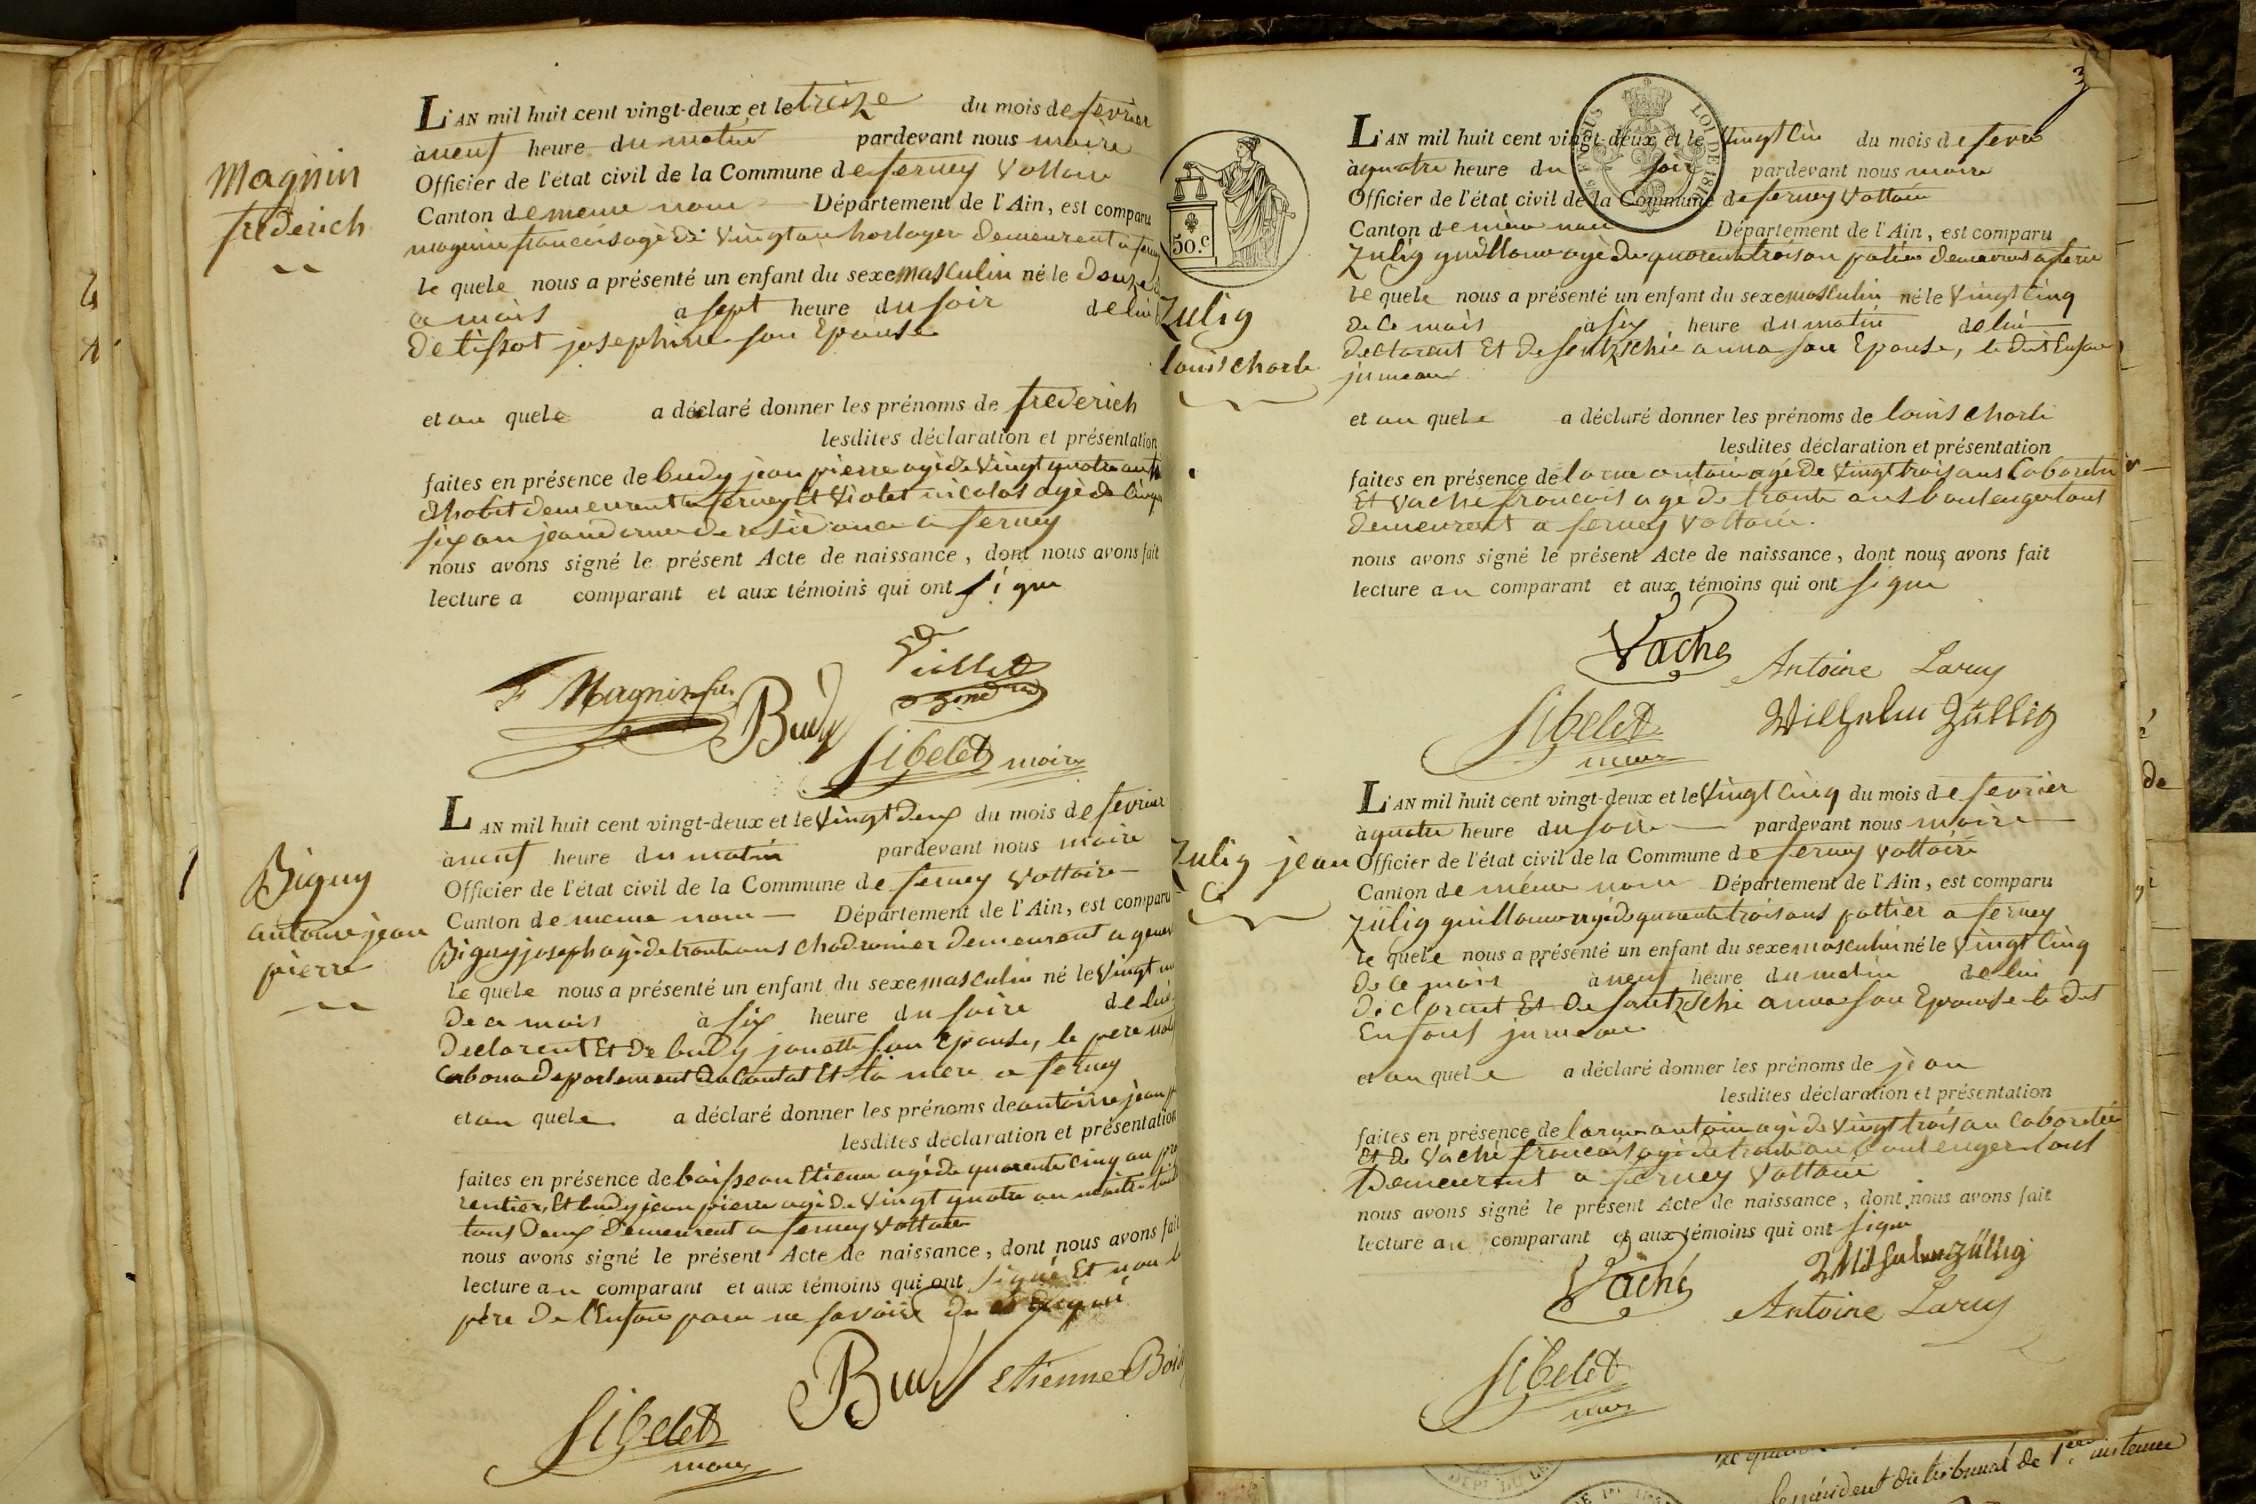 Magnin
frederich
L'AN mil huit cent vingt-deux et le treize du mois de fevrier
à neuf heure du matin pardevant nous maire
Officier de l'état civil de la Commune de ferney Voltaire
Canton de meme nom Département de l'Ain, est comparu
magnin francois agè de Vingt an horloger demeurent a ferney
le quele nous a présenté un enfant du sexe masculin né le Douze
ce mois a sept heure du soir de lui
de tissot josephine son Epouse
et au quele a déclaré donner les prénoms de frederich
lesdites déclaration et présentation
faites en présence de budy jean pierre agè de Vingt quatre an
d'habit demeurent a ferney Et Violet nicolas agè de Cinq
six an jeandarme de residance a ferney
nous avons signé le présent Acte de naissance, dont nous avons fait
lecture a comparant et aux témoins qui ont signe
F Magnin fils
Budy
Viollet
Sibelet maire
Biguy
antoine jean
pierre
L'AN mil huit cent vingt-deux et le Vingt deux du mois de fevrier
à neuf heure du matin pardevant nous maire
Officier de l'état civil de la Commune de ferney Voltaire
Canton de meme nom Département de l'Ain, est comparu
Biguy joseph agè de trente ans chadronier demeurent a
le quele nous a présenté un enfant du sexe masculin né le Vingt un
de ce mois à six heure du soire de lui
Declarent Et de budy janette son Epouse, le pere
departement du Cantal Et la mere a ferney
et au quele a déclaré donner les prénoms de antoine jean
lesdites déclaration et présentation
faites en présence de boisson Etienne agè de quarente Cinq an
rentier, Et budy jean pierre agè de Vingt quatre an maitre
tous deux demeurent a ferney Voltaire
nous avons signé le présent Acte de naissance, dont nous avons fait
lecture au comparant et aux témoins qui ont signé Et non le
père de l'Enfant pour ne savoire de
Budy
Etienne
Sibelet
maire
3
LOI DE 1816
50.c
Zulig
louis charle
L'AN mil huit cent vingt-deux et le Vingt Cin du mois de fevri
à quatre heure du soir pardevant nous maire
Officier de l'état civil de la Commune de ferney Voltaire
Canton de mème nom Département de l'Ain, est comparu
Zulig guillaume agè de quarente trois an potier demeurent a ferne
le quele nous a présenté un enfant du sexe masculin né le Vingt Cinq
de Ce mois à six heure du matin de lui
declarent Et de anna son Epouse, le dit Enfant
jumeau
et au quele a déclaré donner les prénoms de louis charle
lesdites déclaration et présentation
faites en présence de larue antoine agè de Vingt trois ans
Et Vaché francois agè de trante ans boulenger tous
demeurent a ferney Voltaire.
nous avons signé le présent Acte de naissance, dont nous avons fait
lecture au comparant et aux témoins qui ont signe
Vaché
Antoine Larue
Sibelet
maire
Wilhelm Züllig
Zulig jean
L'AN mil huit cent vingt-deux et le Vingt Cinq du mois de fevrier
à quatre heure du soire pardevant nous maire
Officier de l'état civil de la Commune de ferney Voltaire
Canton de méme nom Département de l'Ain, est comparu
Zülig guillaume agè de quarente trois ans pottier a ferney
le quele nous a présenté un enfant du sexe masculin né le Vingt Cinq
de ce mois à neuf heure du matin de lui
declarent Et de anna son Epouse le dit
Enfant jumeau
et au quele a déclaré donner les prénoms de jean
lesdites déclaration et présentation
faites en présence de larue antoine agè de Vingt trois an
Et de Vaché francois agè de trante an boulenger tous
Demeurent a ferney Voltaire
nous avons signé le présent Acte de naissance, dont nous avons fait
lecture au comparant et aux témoins qui ont signe
Vaché
Wilhelm Züllig
Antoine Larue
Sibelet
maire
de
président du tribunal de 1ère instance